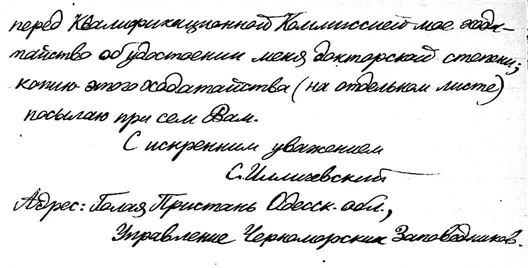 перед Квалификационной Коммиссией мое хода-
тайство об удостоении меня докторской степени;
копию этого ходатайства (на отдельном листе)
посылаю при сем Вам.
С искренним уважением
С. Илличевский
Адрес: Голая Пристань Одесск. обл.,
Управление Черноморских Заповедников.